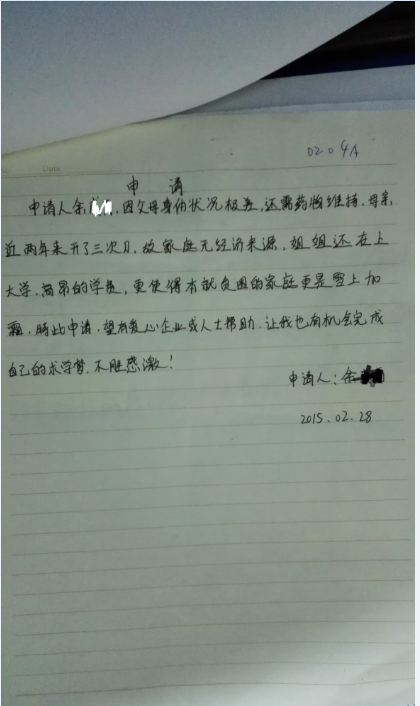 0204A
申 请
申请人余,因父母身体状况极差,还需药物维持,母亲,
近两年来开了三次刀,故家庭无经济来源,姐姐还在上
大学,高昂的学费,更使得本就贫困的家庭更是雪上加
霜,特此申请,望有爱心企业或人士帮助,让我也有机会完成
自己的求学梦,不胜感激!
申请人:余
2015.02.28